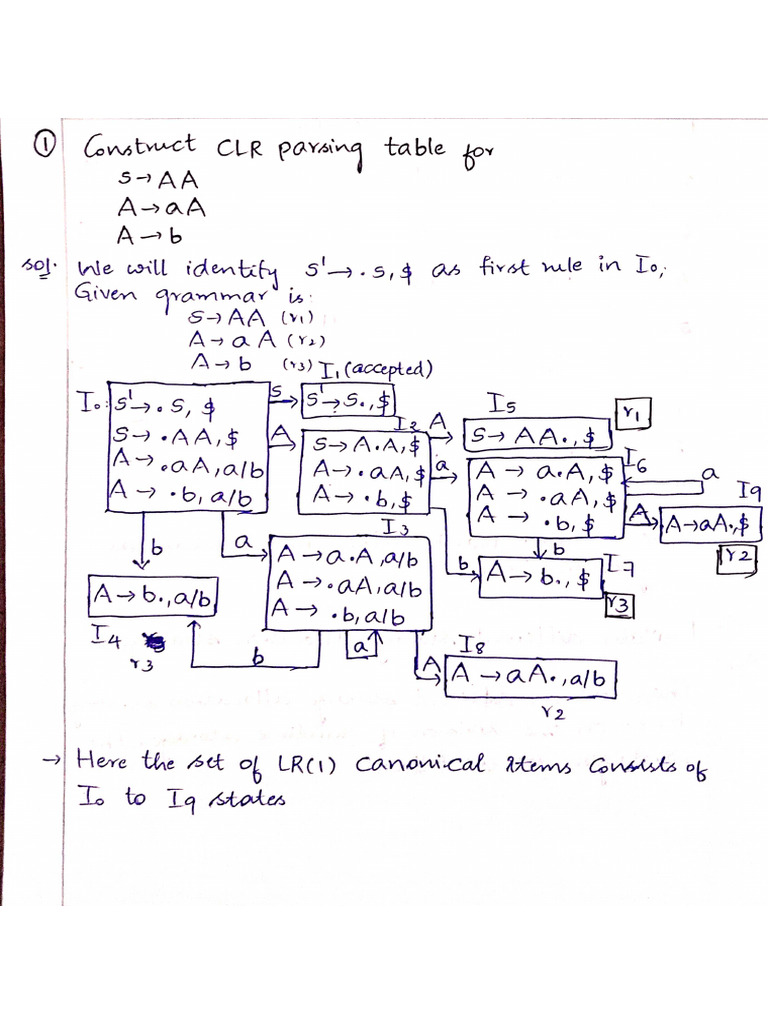 ① Construct CLR parsing table for
S→AA
A→aA
A→b
Sol. We will identify S'→.S,$ as first rule in I₀,
Given grammar is:
S→AA (r₁)
A→aA (r₂)
A→b (r₃)
I₁ (accepted)
I₀:
S'→.S, $
S→.AA,$
A→.aA,a/b
A→.b, a/b
S
S'→S.,$
A
I₂
S→A.A,$
A→.aA,$
A→.b,$
A
I₅
S→AA.,$
r₁
a
I₆
A→a.A,$
A→.aA,$
A→.b,$
a
A
I₉
A→aA.,$
r₂
b
b
I₇
A→b.,$
r₃
b
a
I₃
A→a.A,a/b
A→.aA,a/b
A→.b,a/b
A→b.,a/b
I₄
r₃
b
a
A
I₈
A→aA.,a/b
r₂
→ Here the set of LR(1) canonical items consists of
I₀ to I₉ states